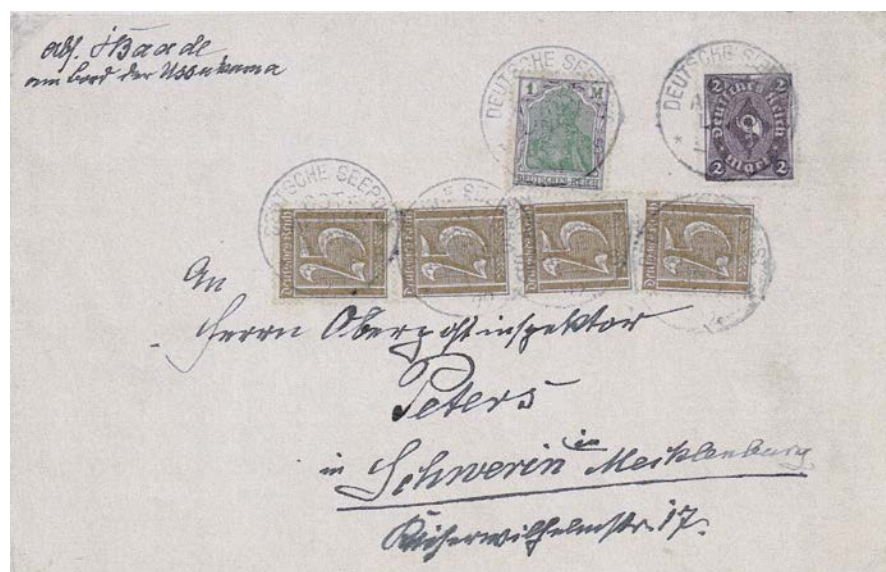 Abs. Haade
am bord der Ussukuma
DEUTSCHE SEEPOST
1 M
DEUTSCHES REICH
DEUTSCHE SEEP
2 2
Deutsches Reich
2 Mark 2
DEUTSCHE SEEPO
Deutsches Reich 25
Deutsches Reich 25
Deutsches Reich 25
Deutsches Reich 25
An
Herrn Oberpostinspektor
Peters
in Schwerin im Mecklenburg
Kaiserwilhelmstr. 17.